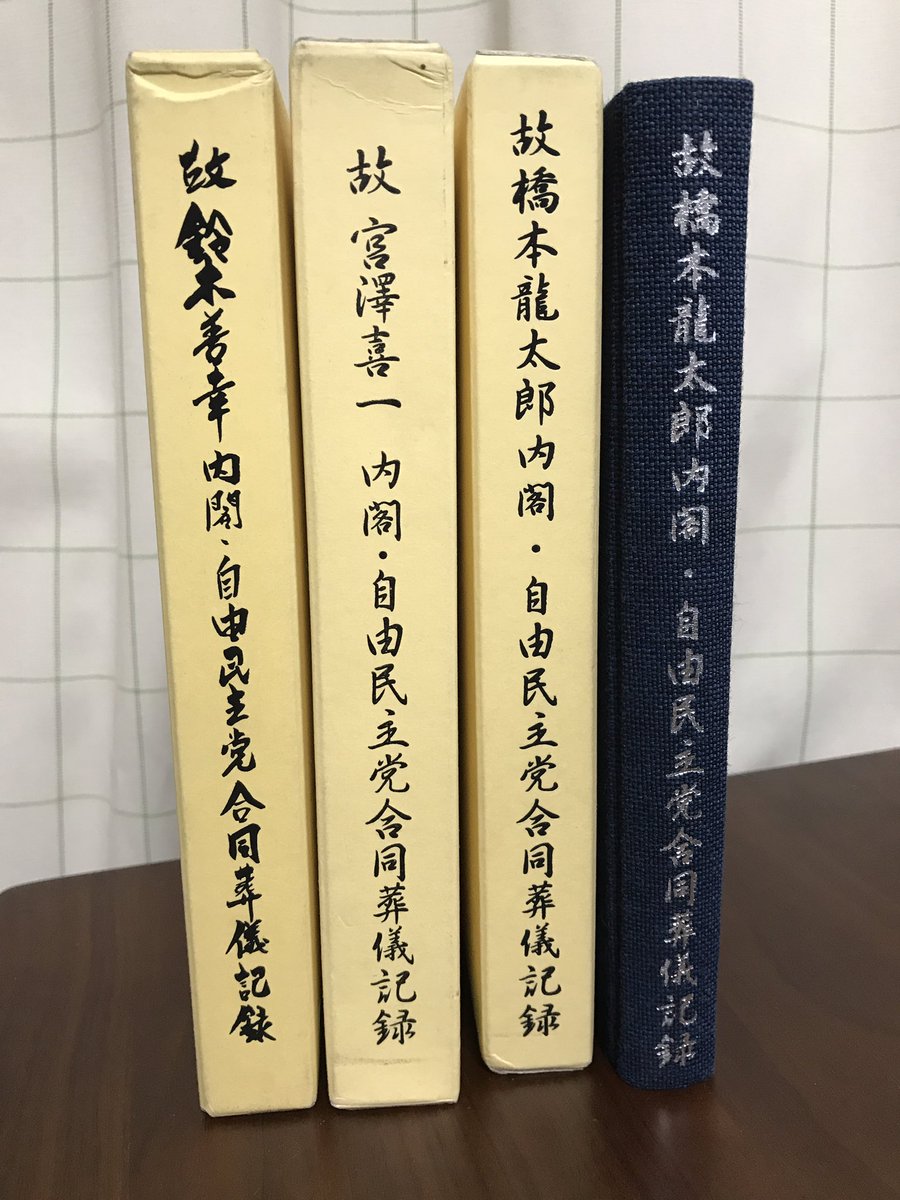 故 鈴木善幸内閣・自由民主党合同葬儀記録
故 宮澤喜一 内閣・自由民主党合同葬儀記録
故橋本龍太郎内閣・自由民主党合同葬儀記録
故橋本龍太郎内閣・自由民主党合同葬儀記録